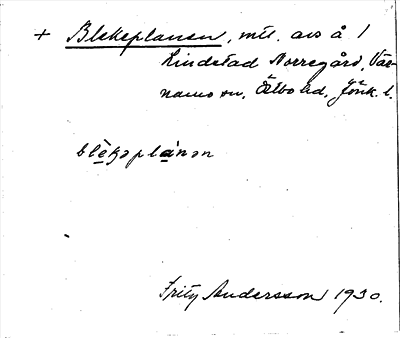 + Blekeplanen, mtl. avs å 1
Lindstad Norregård, Vär-
namo sn, Östbo hd, Jönk. l.
blèkəplánən
Fritz Andersson 1930.